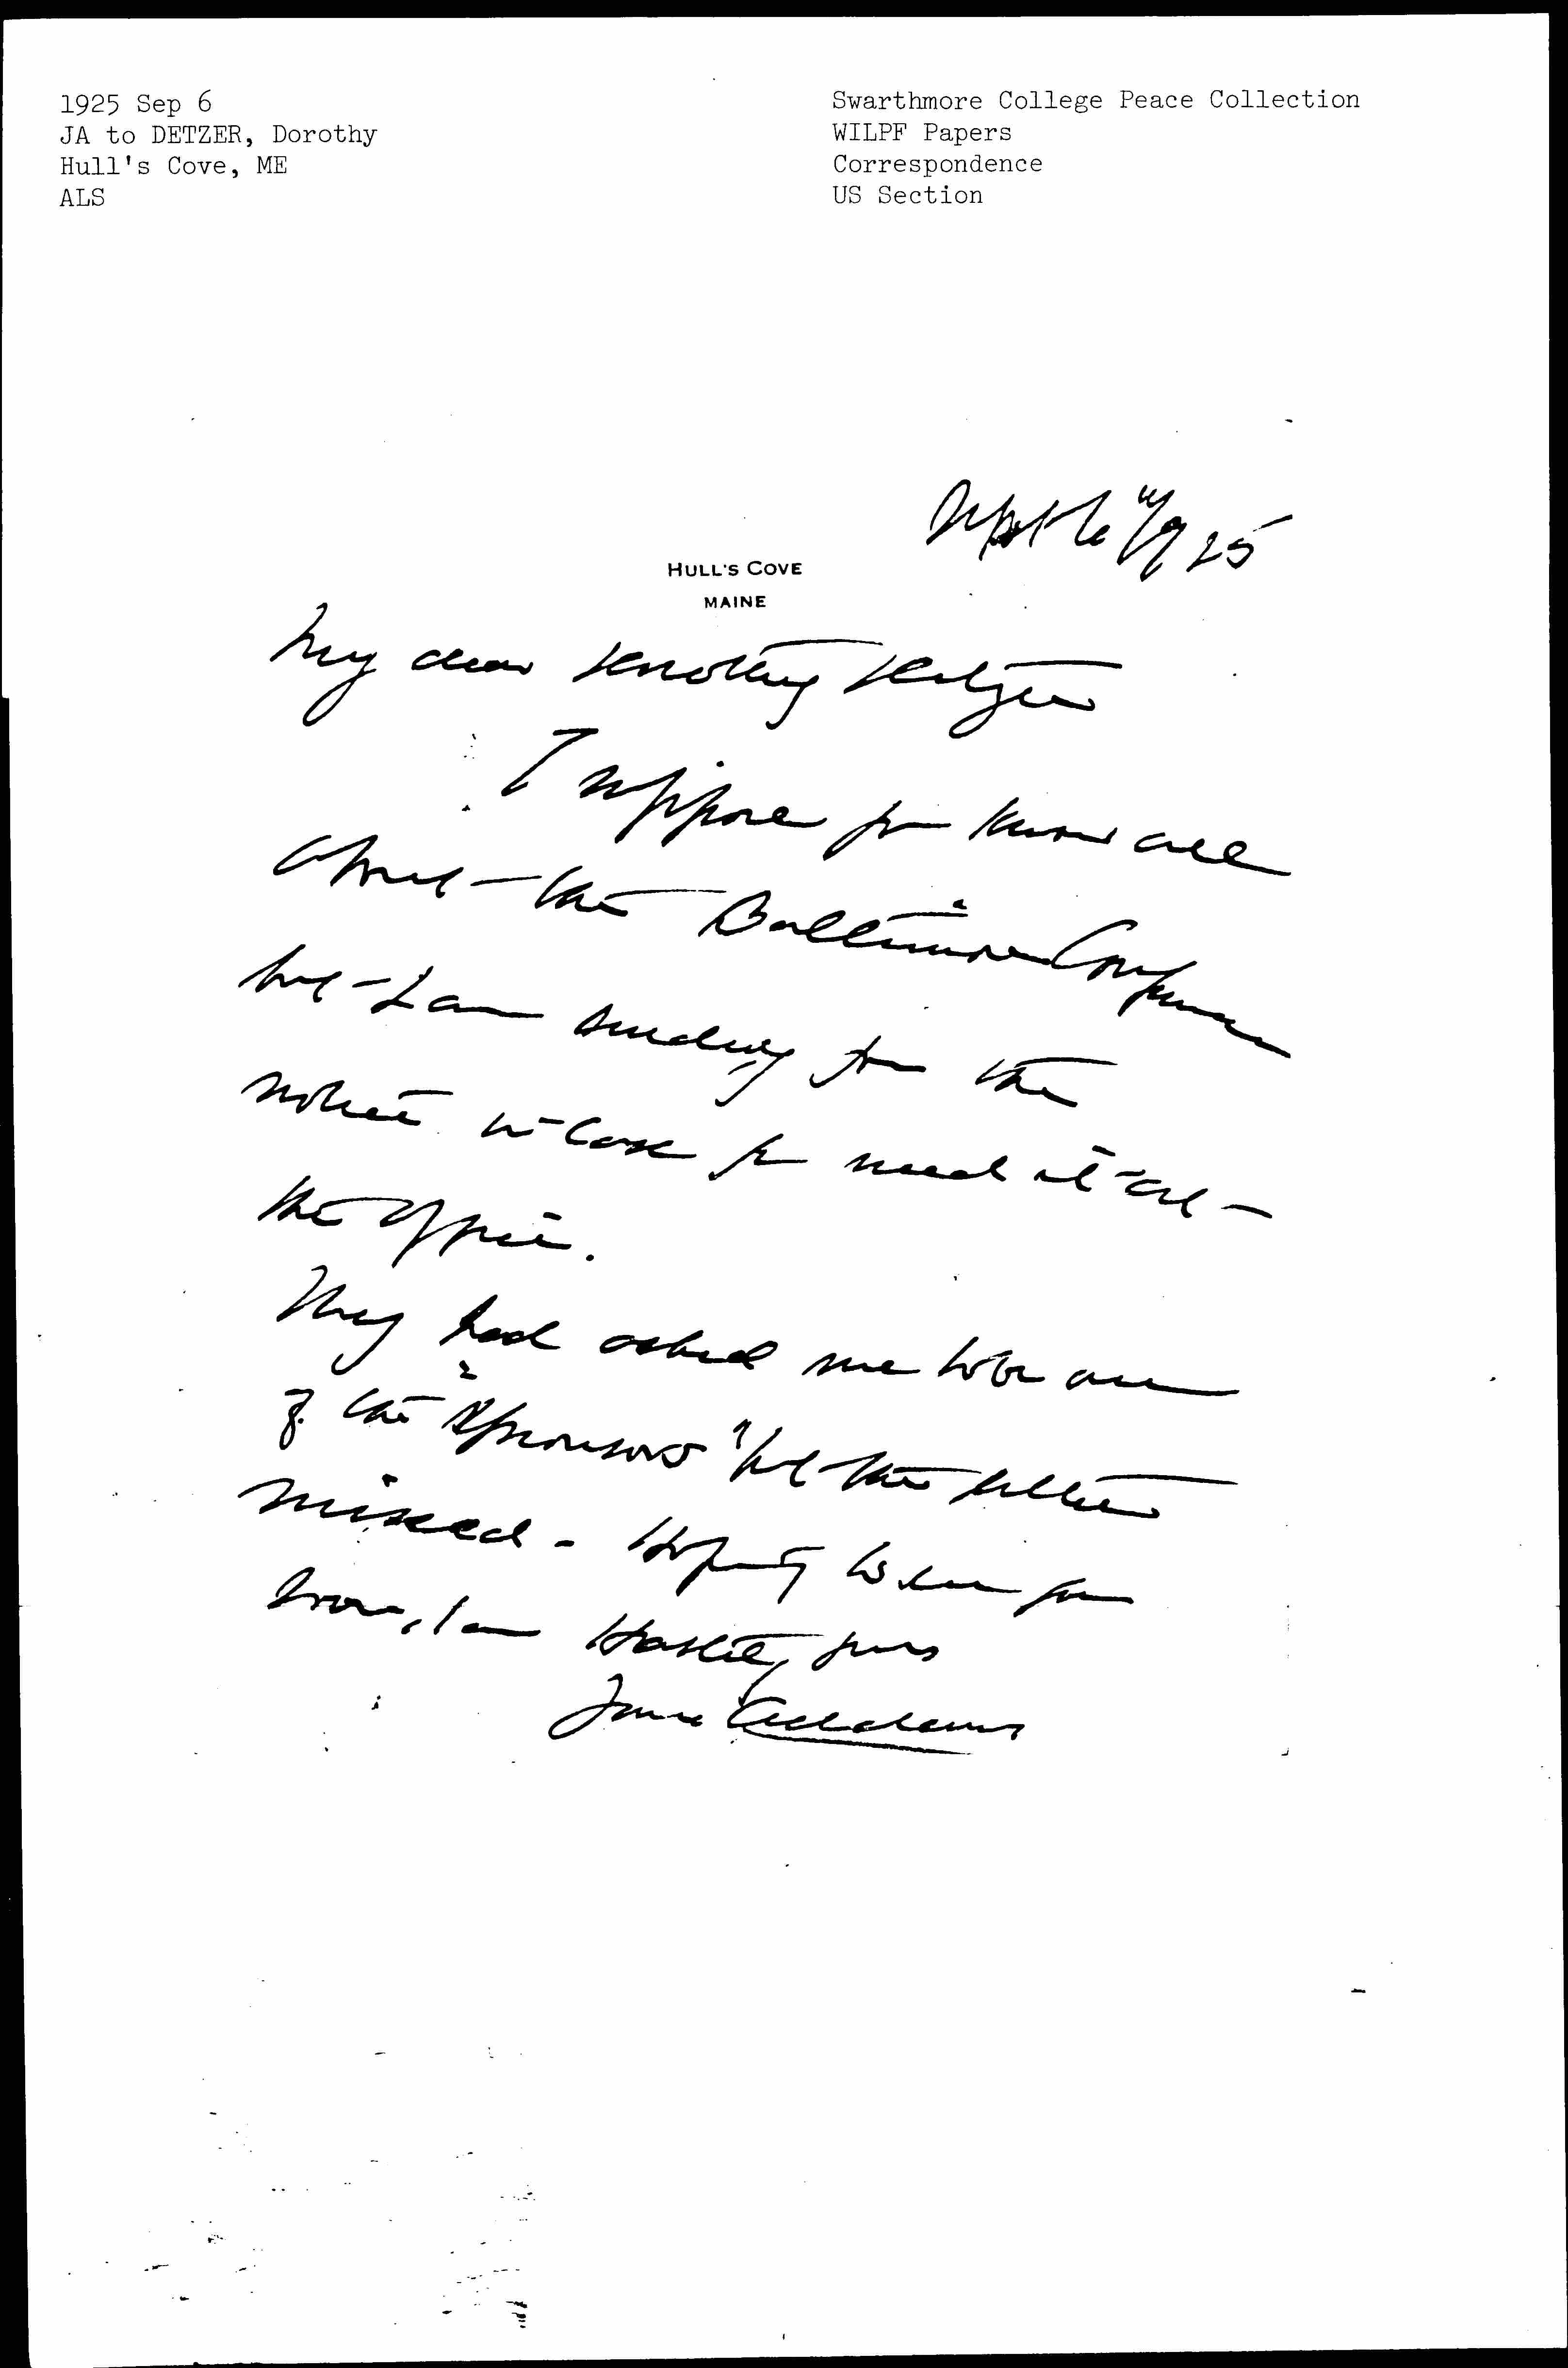 1925 Sep 6
JA to DETZER, Dorothy
Hull's Cove, ME
ALS
Swarthmore College Peace Collection
WILPF Papers
Correspondence
US Section
Sept 6" 1925
HULL'S COVE
MAINE
My dear Dorothy Detzer
I suppose you know all
about the Baltimore Conference
but I am sending you the
notice in case you need it at
the office.
They had asked me to be one
of the "Sponsors" but the letter
missed - Hoping to see you
soon, I am Hastily yours
Jane Addams